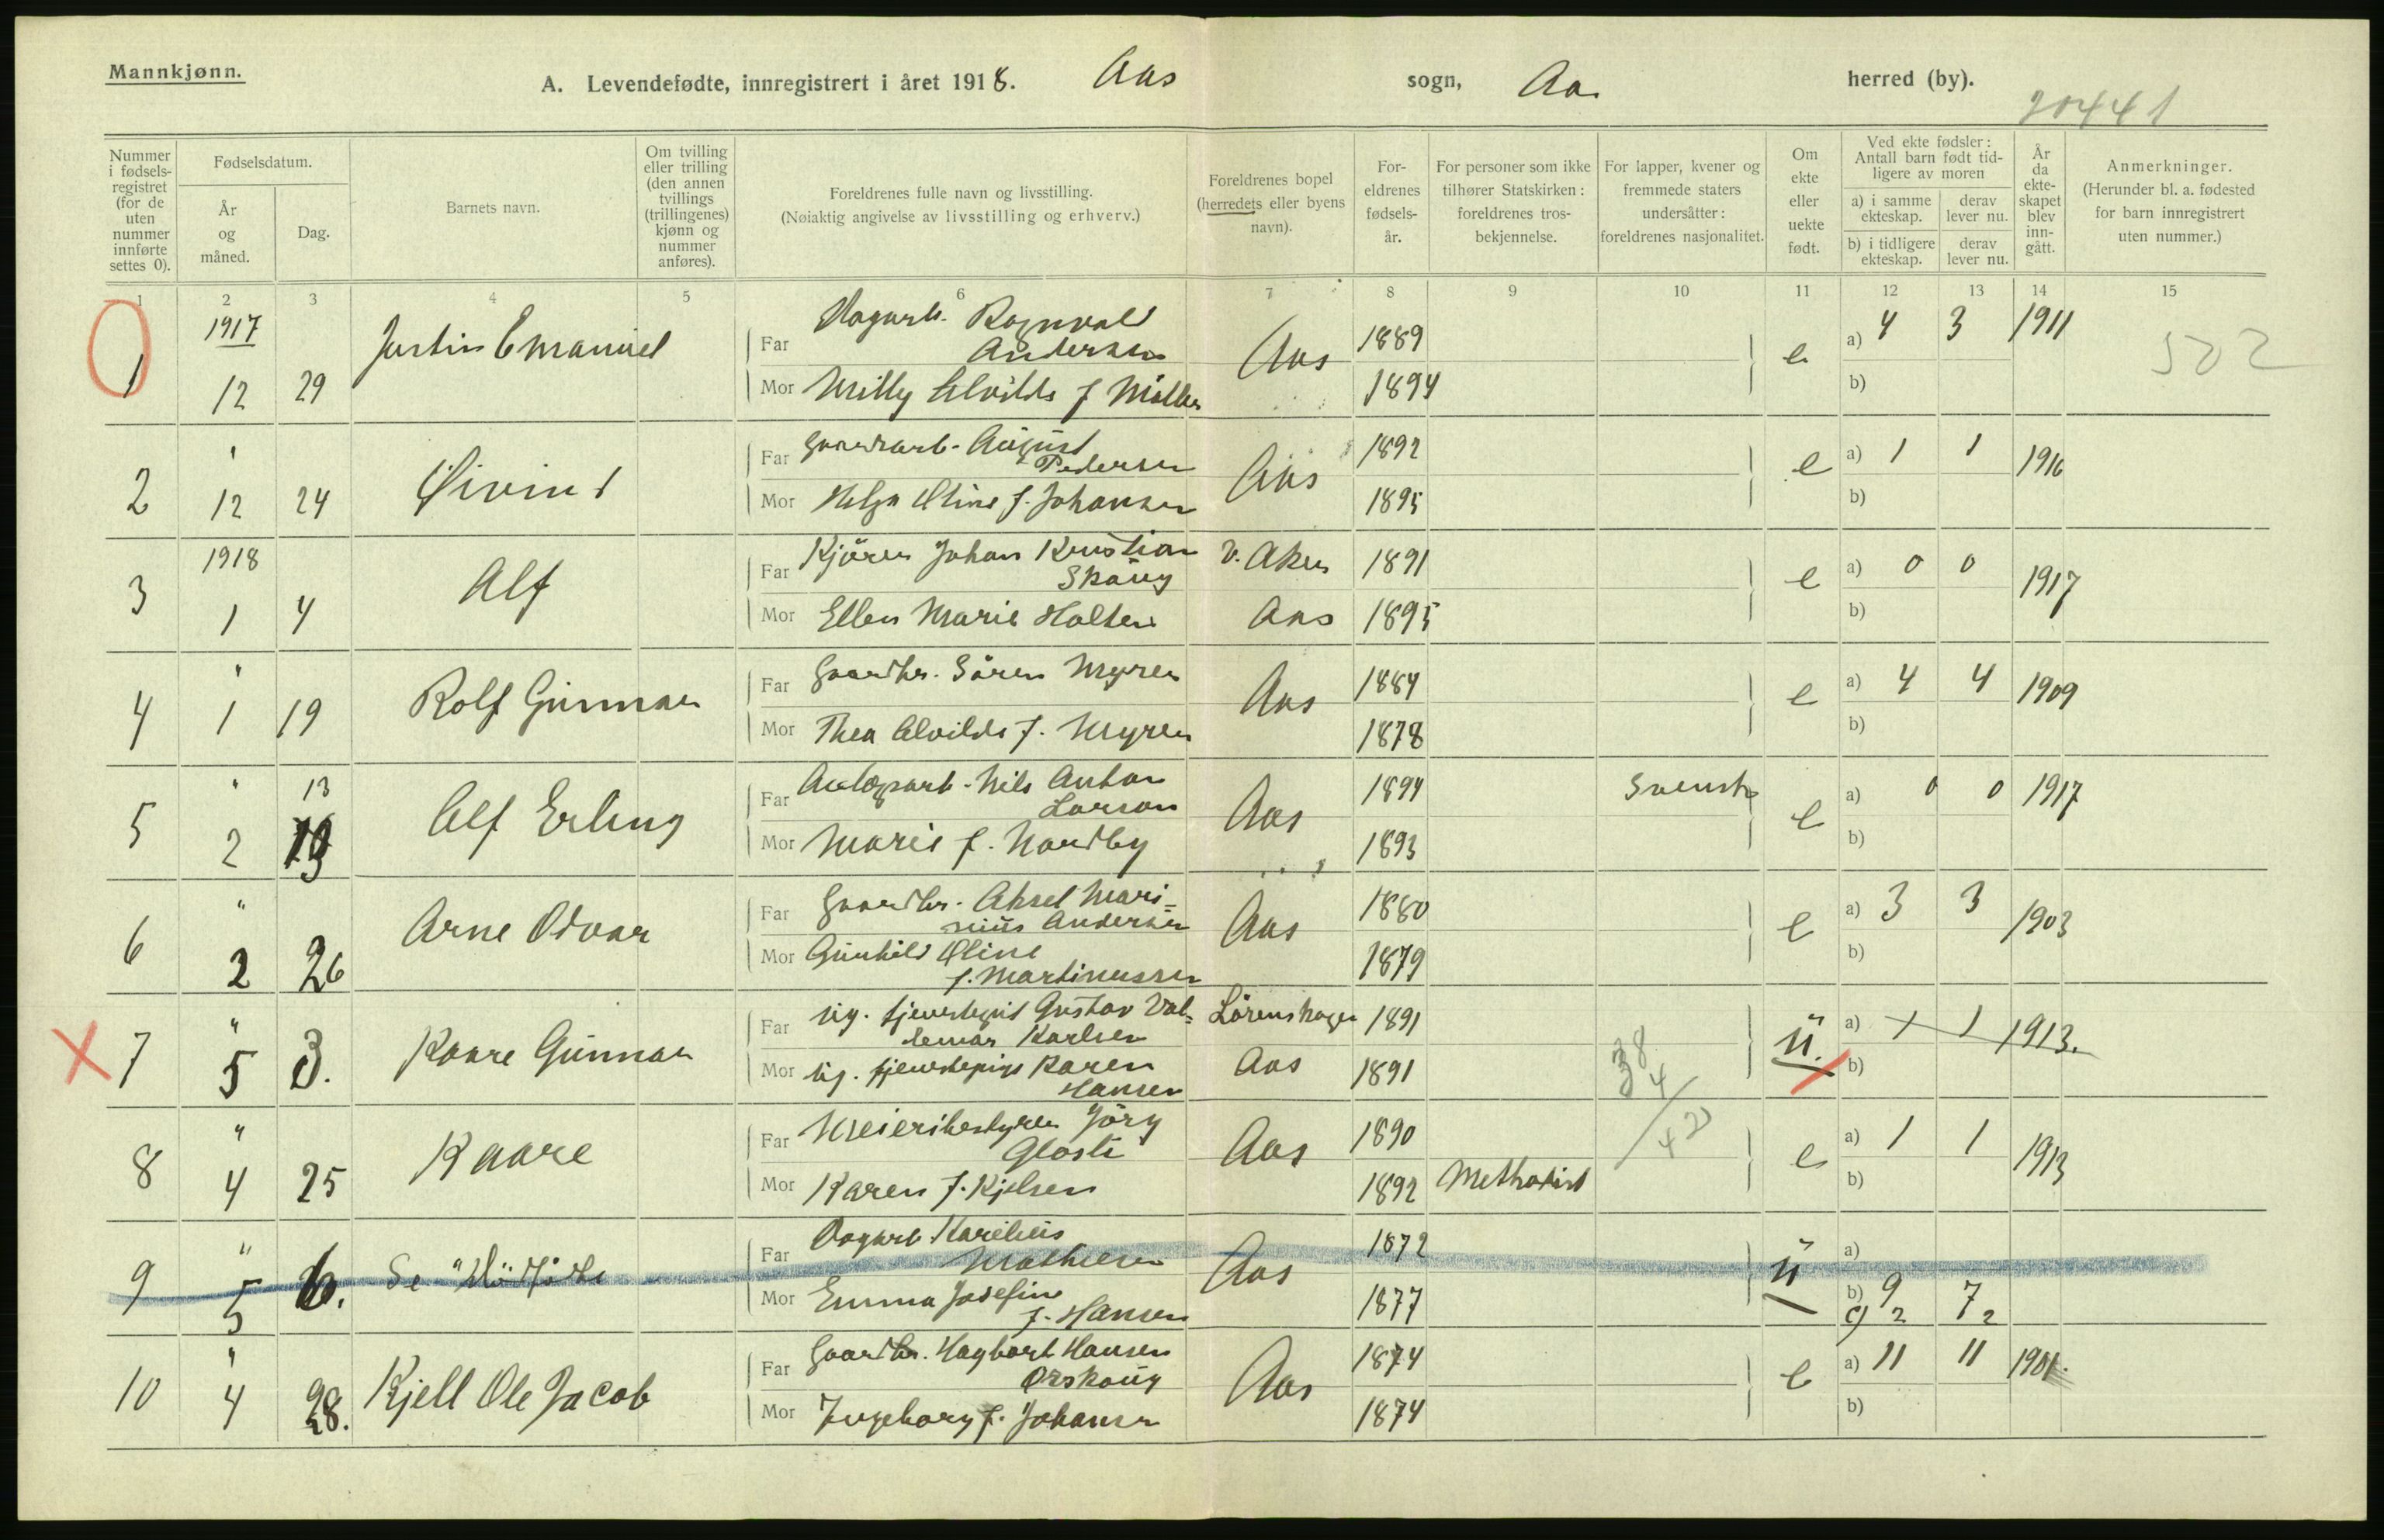 Mannkjønn.
A. Levendefødte, innregistrert i året 1918. Aas sogn, Aas herred (by).
20441
Nummer i fødsels-registret (for de uten nummer innførte settes 0).
Fødselsdatum.
År og måned.
Dag.
Barnets navn.
Om tvilling eller trilling (den annen tvillings (trillingenes) kjønn og nummer anføres).
Foreldrenes fulle navn og livsstilling.
(Nøiaktig angivelse av livsstilling og erhverv.)
Foreldrenes bopel (herredets eller byens navn).
For-eldrenes fødsels-år.
For personer som ikke tilhører Statskirken: foreldrenes tros-bekjennelse.
For lapper, kvener og fremmede staters undersåtter: foreldrenes nasjonalitet.
Om ekte eller uekte født.
Ved ekte fødsler: Antall barn født tid-ligere av moren
a) i samme ekteskap. derav lever nu.
b) i tidligere ekteskap. derav lever nu.
År da ekte-skapet blev inn-gått.
Anmerkninger.
(Herunder bl. a. fødested for barn innregistrert uten nummer.)
1 2 3 4 5 6 7 8 9 10 11 12 13 14 15
1 1917 12 29 Justin Emanuel
Far Dagarb. Ragnvald Andersen Aas 1889 e a) 4 3 1911 502
Mor Milly Alvilde f Möller 1894 b)
2 " 12 24 Øivind
Far Gaardarb. August Pedersen Aas 1892 e a) 1 1 1916
Mor Helga Oline f. Johansen 1895 b)
3 1918 1 4 Alf
Far Kjörer Johan Kristian Skaug V. Aker 1891 e a) 0 0 1917
Mor Ellen Marie Holten Aas 1895 b)
4 " 1 19 Rolf Gunnar
Far Gaardbr. Sören Myrer Aas 1884 e a) 4 4 1909
Mor Thea Alvilde f. Myrer 1878 b)
5 " 2 13 Alf Erling
Far Anlægsarb. Nils Anton Larson Aas 1894 Svensk e a) 0 0 1917
Mor Marie f. Nordby 1893 b)
6 " 2 26 Arne Odvar
Far Gaardbr. Aksel Mari=nius Andersen Aas 1880 e a) 3 3 1903
Mor Gunhild Oline f. Martinussen 1879 b)
7 " 5 3. Kaare Gunnar
Far ug. tjenestegut Gustav Val=demar Karlsen Lörenskogen 1891 u. a) 1 1 1913.
Mor ug. tjenestepige Karen Hansen Aas 1891 b)
38 4/42
8 " 4 25 Kaare
Far Meieribestyrer Jörg Glosli Aas 1890 e a) 1 1 1913
Mor Karen f. Kjelsen 1892 Methodist b)
9 " 5 6. Se "Dödfödte
Far Dagarb. Karelius Mathisen Aas 1872 u a)
Mor Emma Josefine f. Hansen 1877 b) 9 7
c) 2 2
10 " 4 28. Kjell Ole Jacob
Far Gaardbr. Hagbart Hansen Orskoug Aas 1874 e a) 11 11 1901.
Mor Ingeborg f. Johansen 1874 b)